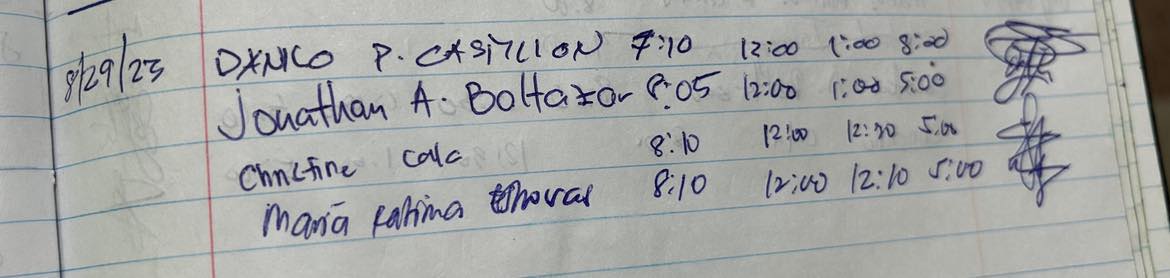 8/29/23 DANICO P. CASTILLON 7:10 12:00 1:00 8:00
Jonathan A. Boltazar 8:05 12:00 1:00 5:00
Christine Cala 8:10 12:00 12:30 5:00
Maria Fatima 8:10 12:00 12:10 5:00